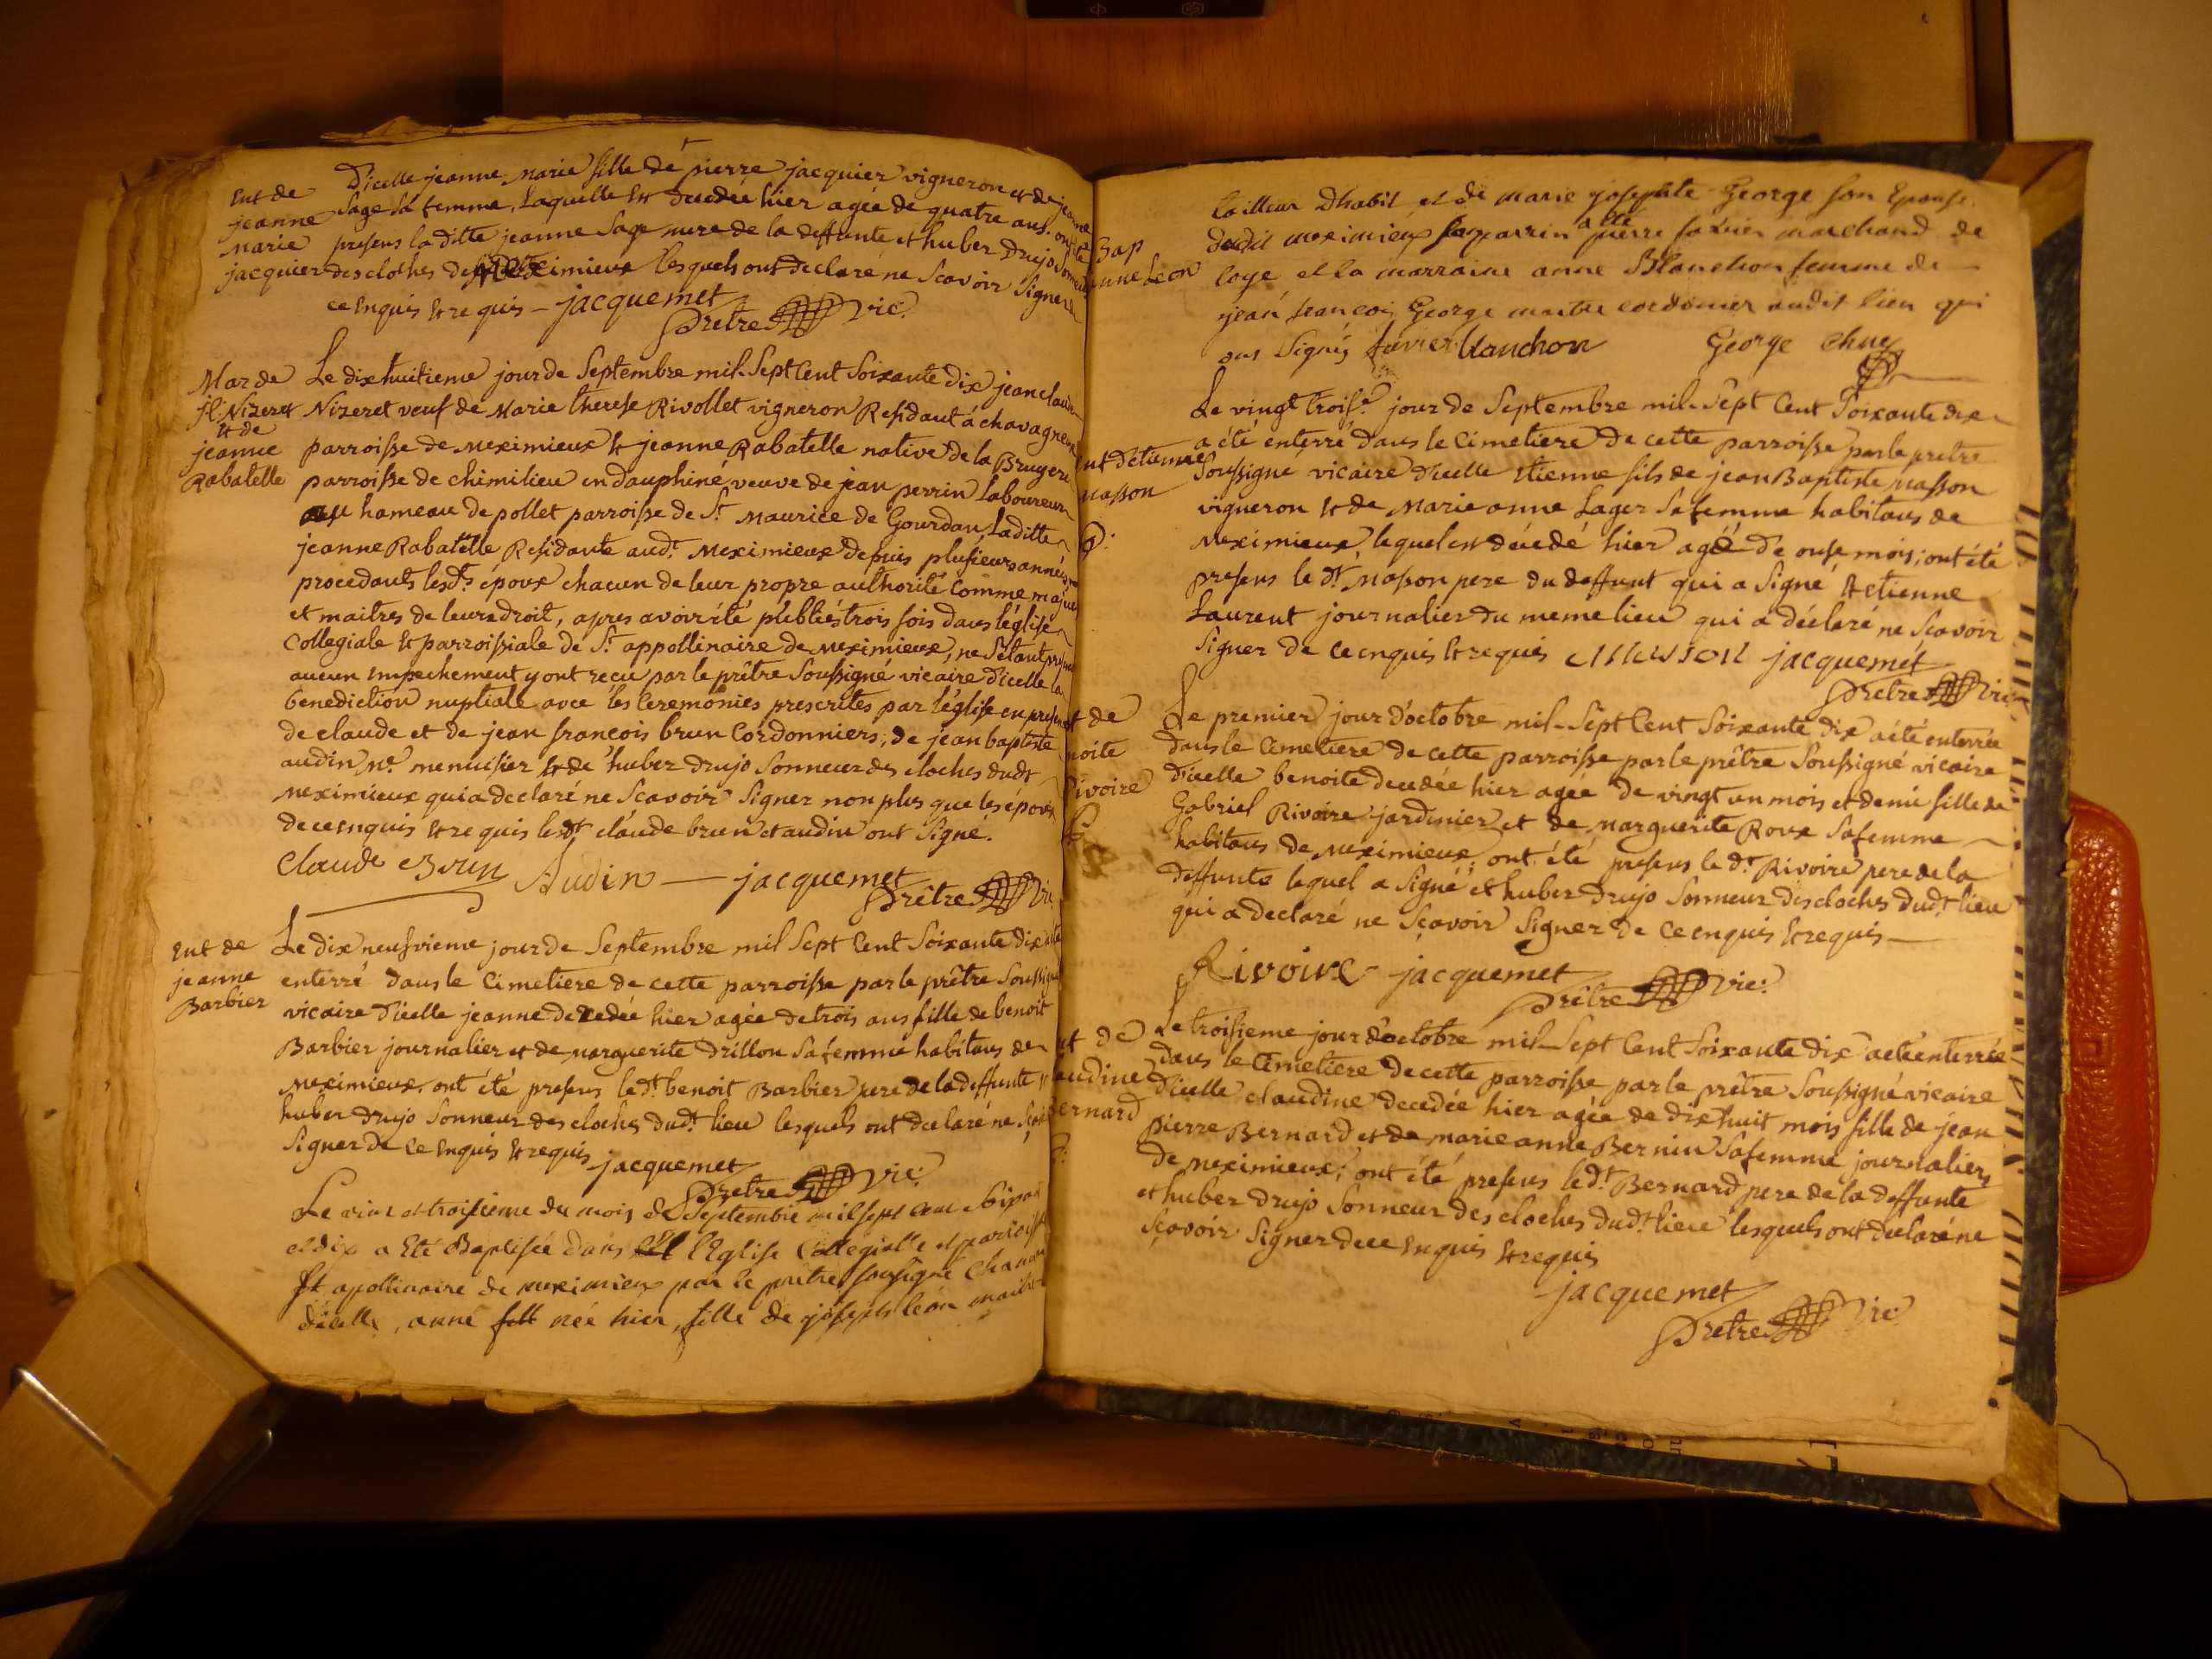 Ent de
jeanne
marie
jacquier
D'icelle jeanne marie fille de pierre jacquier vigneron et de jeanne
Sage sa femme, Laquelle est decedée hier agée de quatre ans. ont été
presens laditte jeanne Sage mere de la deffunte et huber Drujo Sonneur
des cloches de Meximieux lesquels ont declaré ne Scavoir Signer de
ce enquis et requis - jacquemet
prêtre vic:
Mar de
jl: Nizeret
et de
jeanne
Rabatelle
Le dixhuitieme jour de Septembre mil Sept Cent Soixante dix jean claude
Nizeret veuf de Marie therese Rivollet vigneron Residant à chavagneux
parroisse de Meximieux et jeanne Rabatelle native de la Bruyere
parroisse de chimilieu en dauphiné, veuve de jean perrin Laboureur
au hameau de pollet parroisse de St Maurice de Gourdan, Laditte
jeanne Rabatelle Residante audt Meximieux depuis plusieurs années
procedants lesdts époux chacun de leur propre authorité Comme majeurs
et maitres de leurs droit, apres avoir été publiés trois fois dans l'église
Collegiale et parroissiale de St appollinaire de Meximieux, ne S'étant
aucun empechement y ont reçu par le prêtre Soussigné vicaire d'icelle la
benediction nuptiale avec les Ceremonies prescrites par l'église en
de claude et de jean françois brun Cordonniers, de jean baptiste
audin me menuisier et de huber drujo Sonneur des cloches dudt
Meximieux qui a declaré ne Scavoir Signer non plus que les époux
de ce enquis et requis lesdt claude brun et audin ont Signé.
Claude Brun Audin — jacquemet
prêtre vic:
Ent de
jeanne
Barbier
Le dix neufvieme jour de Septembre mil Sept Cent Soixante dix a été
enterré dans le Cimetiere de cette parroisse par le prêtre Soussigné
vicaire d'icelle jeanne decedée hier agée de trois ans fille de benoit
Barbier journalier et de marguerite Drillon Sa femme habitans de
Meximieux. ont été presens ledt benoit Barbier pere de la deffunte et
huber drujo Sonneur des cloches dudt lieu lesquels ont declaré ne
Signer de ce enquis et requis jacquemet
prêtre vic:
Le vint et troisieme du mois de Septembre mil sept cent
et dix a Eté Baptisée dans l'Eglise Collegialle et
St apollinaire de meximieux par le prêtre sousigné
d'icelle, anne née hier, fille de joseph leon
Bap
anne Leon
tailleur Dhabit et de marie josephte George son Epouse
dudit meximieux. parrin a été pierre favier marchand de
loye et la marraine anne Blanchon femme de
jean françois George maitre cordonier audit lieu qui
ont Signés favier blanchon George Chuy
ent d'etienne
masson
Le vingt trois.e jour de Septembre mil Sept Cent Soixante dix
a été enterré dans le Cimetiere de cette parroisse par le pretre
Soussigné vicaire d'icelle Etienne fils de jean Baptiste masson
vigneron et de Marie anne Lager Sa femme habitans de
Meximieux, lequel est décedé hier agé de onse mois; ont été
presens le dt Masson pere du deffunt qui a Signé et etienne
Laurent journalier du meme lieu qui a déclaré ne Scavoir
Signer de ce enquis et requis Masson jacquemet
prêtre vic
ent de
noite
Rivoire
Le premier jour d'octobre mil Sept Cent Soixante dix a été enterrée
dans le Cimetiere de cette parroisse par le prêtre Soussigné vicaire
d'icelle benoite decedée hier agée de vingt un mois et demi fille de
Gabriel Rivoire jardinier et de marguerite Roux Sa femme
habitans de Meximieux; ont été presens le dt Rivoire pere de la
deffunte lequel a Signé et huber drujo Sonneur des cloches dudt lieu
qui a declaré ne Scavoir Signer de ce enquis et requis —
Rivoire jacquemet
prêtre vic:
ent de
audine
Bernard
Le troisieme jour d'octobre mil Sept Cent Soixante dix a été enterrée
dans le Cimetiere de cette parroisse par le prêtre Soussigné vicaire
d'icelle claudine decedée hier agée de dix huit mois fille de jean
pierre Bernard et de marie anne Bernin Sa femme journaliers
de Meximieux; ont été presens ledt Bernard pere de la deffunte
et huber drujo Sonneur des cloches dudt lieu lesquels ont declaré ne
Scavoir Signer de ce enquis et requis
jacquemet
prêtre vic: